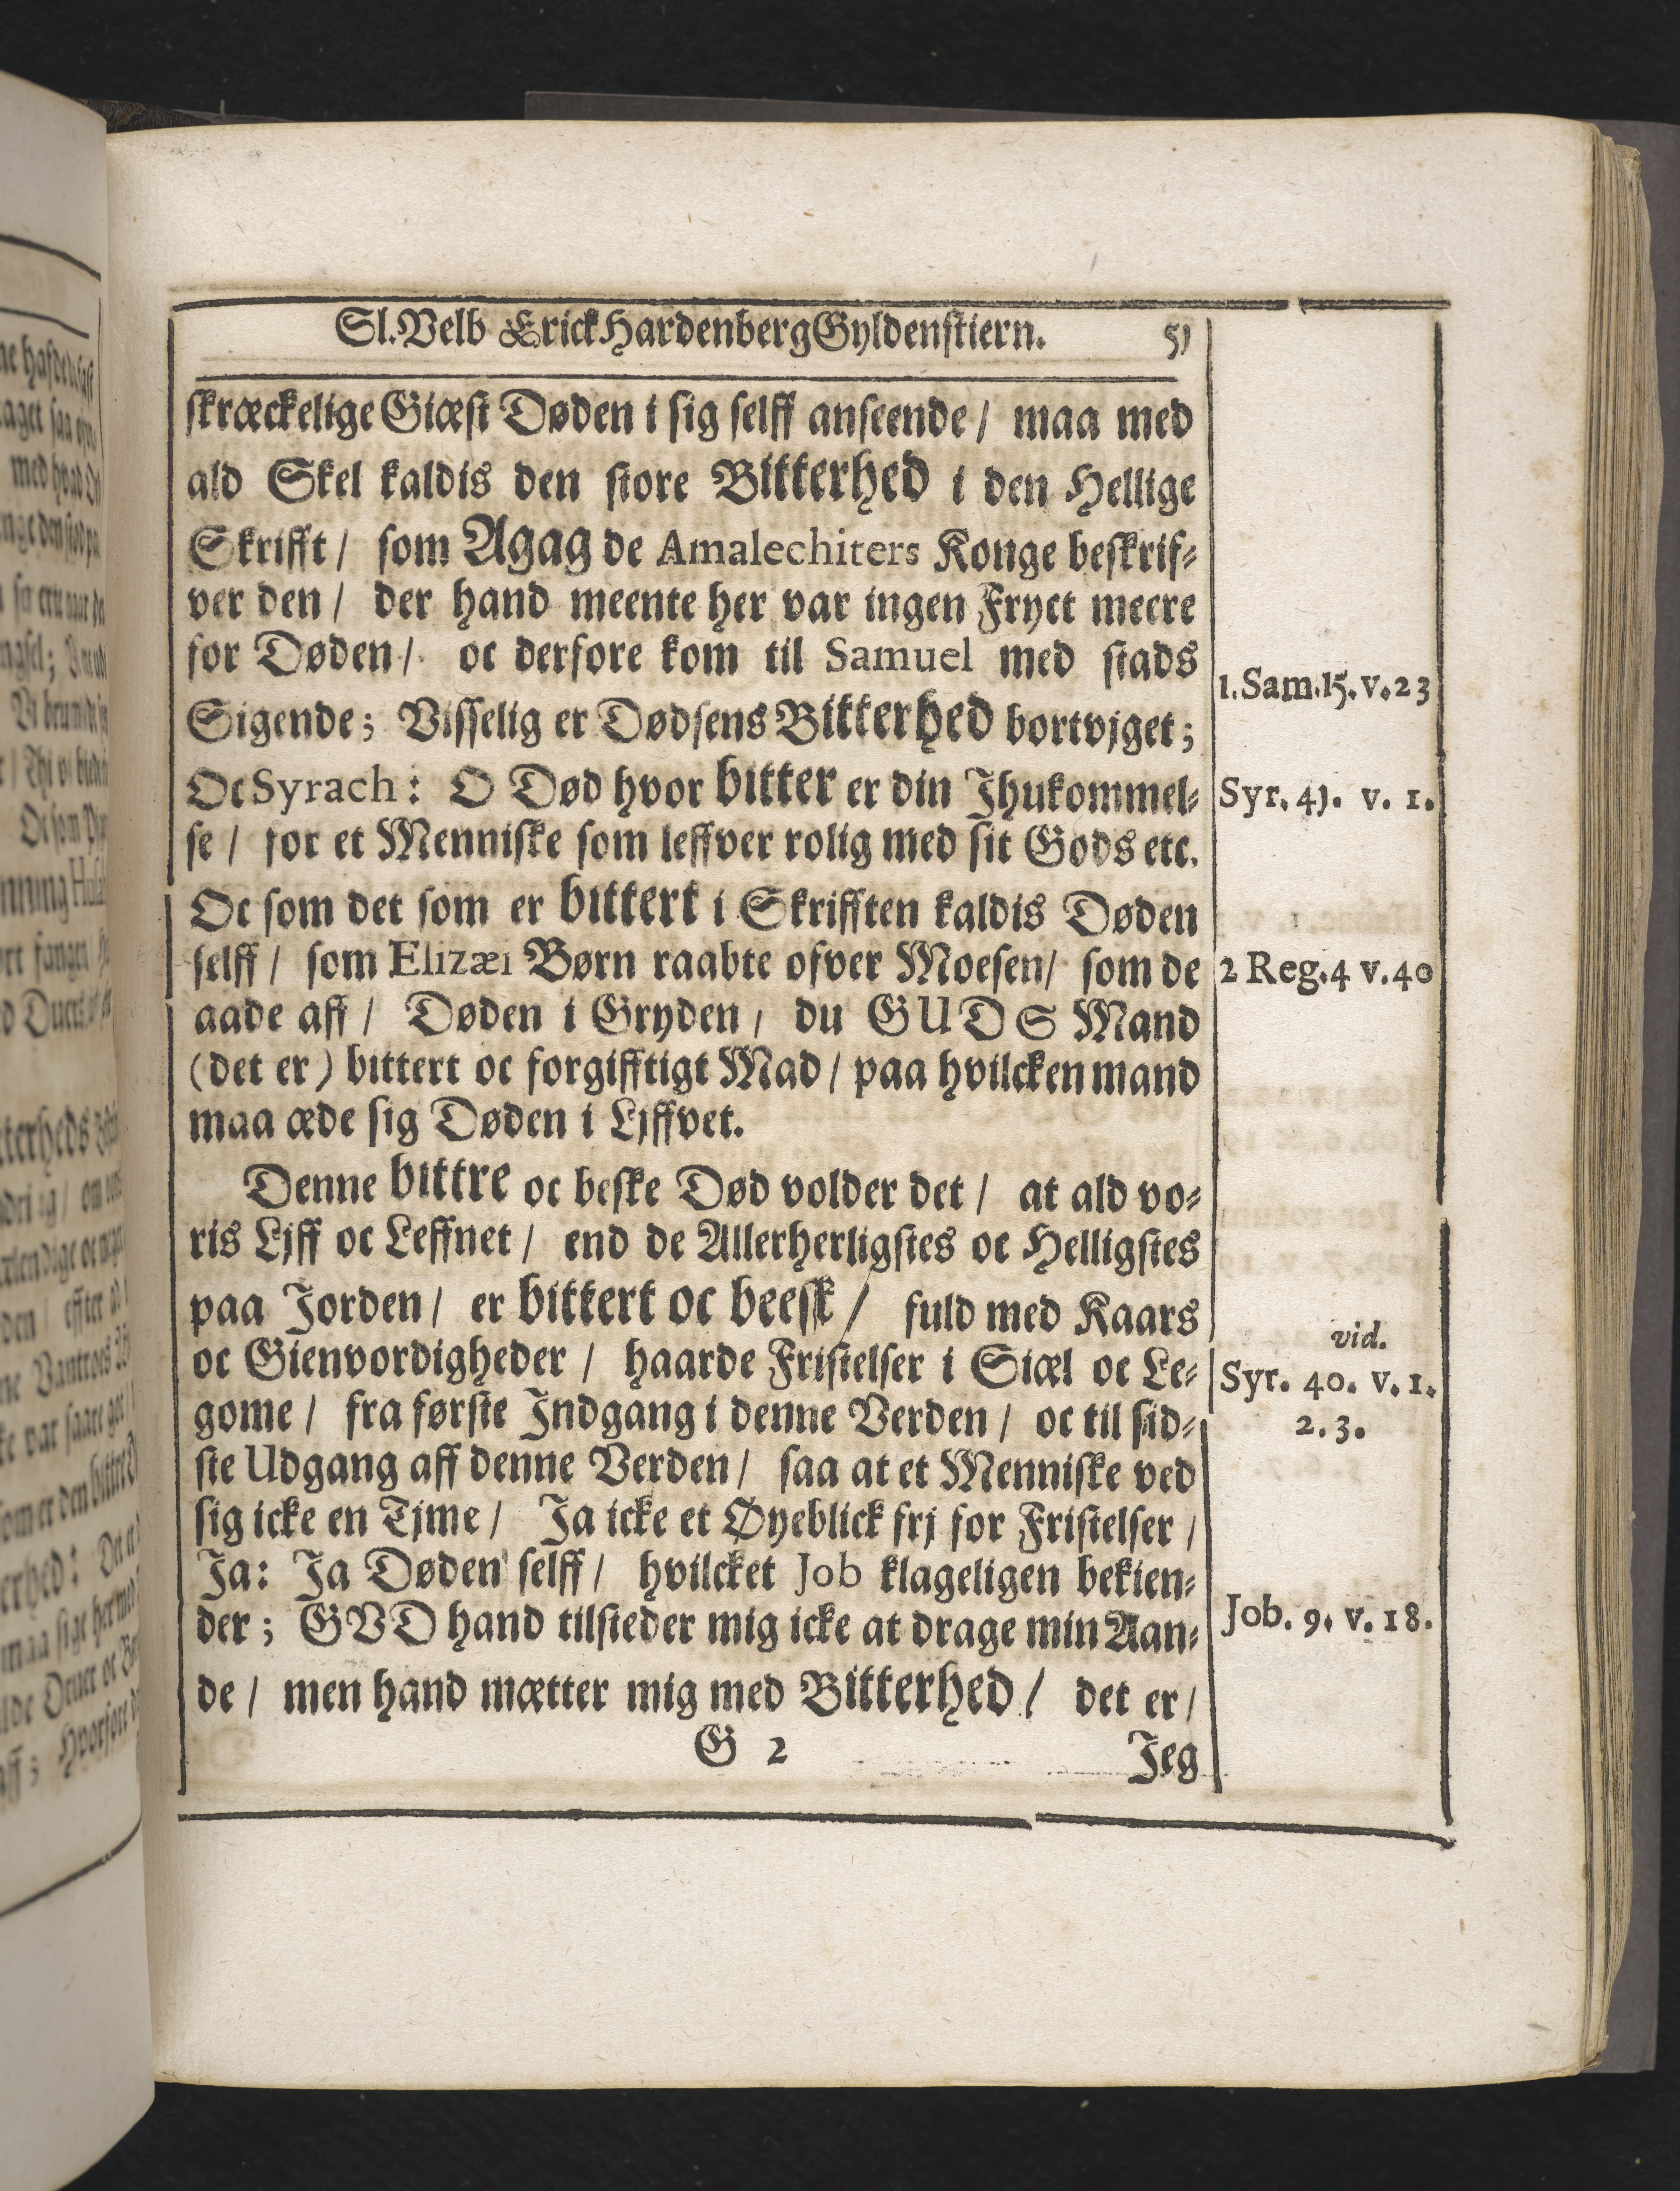 Sl. Velb Erick Hardenberg Gyldenstiern. 51
skræckelige Giæst Døden i sig selff anseende / maa med
ald Skel kaldis den store Bitterhed i den Hellige
Skrifft / som Agag de Amalechiters Konge beskrif-
ver den / der hand meente her var ingen Fryct meere
for Døden / oc derfore kom til Samuel med stads
1. Sam. 15. v. 23
Sigende; Visselig er Dødsens Bitterhed bortvjget;
Oc Syrach: O Død hvor bitter er din Jhukommel-
Syr. 41. v. 1.
se / for et Menniske som leffver rolig med sit Gods etc.
Oc som det som er bittert i Skrifften kaldis Døden
selff / som Elizæi Børn raabte ofver Moesen / som de
2 Reg. 4 v. 40
aade aff / Døden i Gryden / du GUDS Mand
(det er) bittert oc forgifftigt Mad / paa hvilcken mand
maa æde sig Døden i Ljffvet.
Denne bittre oc beske Død volder det / at ald vo-
ris Ljff oc Leffnet / end de Allerherligstes oc Helligstes
paa Jorden / er bittert oc beesk / fuld med Kaars
vid.
oc Gienvordigheder / haarde Fristelser i Siæl oc Le-
Syr. 40. v. 1.
gome / fra første Indgang i denne Verden / oc til sid-
2. 3.
ste Udgang aff denne Verden / saa at et Menniske ved
sig icke en Tjme / Ja icke et Øyeblick frj for Fristelser /
Ja: Ja Døden selff / hvilcket Job klageligen bekien-
der; GVD hand tilsteder mig icke at drage min Aan-
Job. 9. v. 18.
de / men hand mætter mig med Bitterhed / det er /
G 2 Jeg